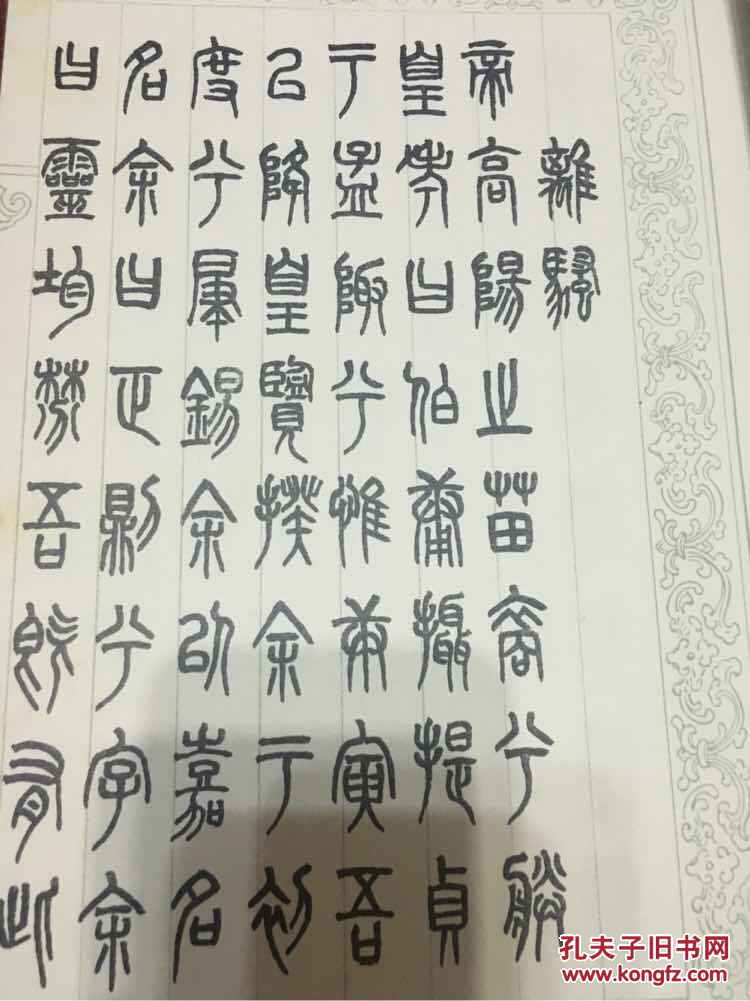 離騷
帝高陽之苗裔兮朕
皇考曰伯庸攝提貞
于孟陬兮惟庚寅吾
以降皇覽揆余于初
度兮肁錫余以嘉名
名余曰正則兮字余
曰靈均棼吾既有此
孔夫子旧书网
www.kongfz.com